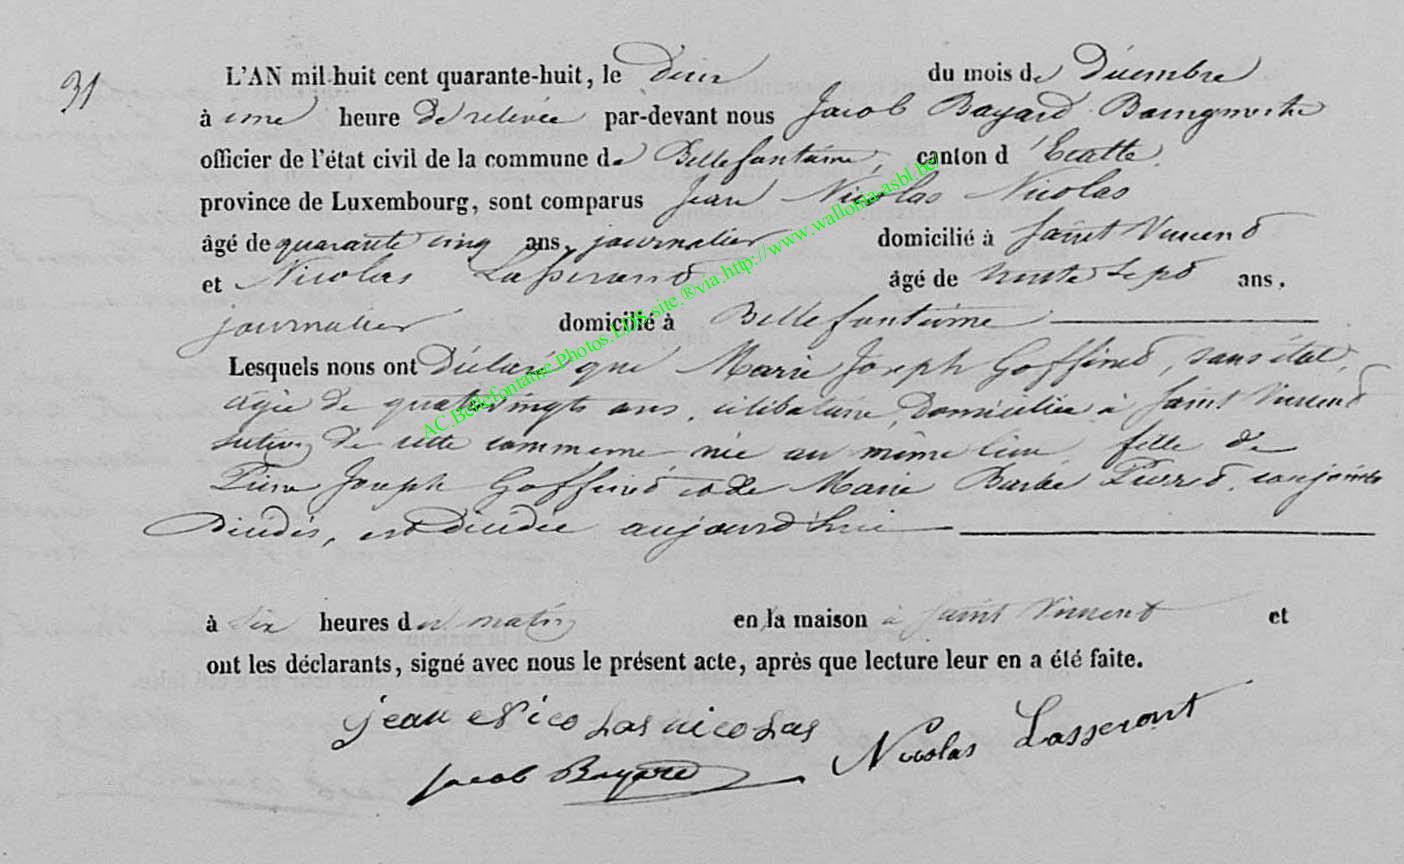 31
L'AN mil huit cent quarante-huit, le deux du mois de Décembre
à une heure de relevée par-devant nous Jacob Bayard Bourgmestre
officier de l'état civil de la commune de Bellefontaine, canton d'Etalle
province de Luxembourg, sont comparus Jean Nicolas Nicolas
âgé de quarante cinq ans, journalier domicilié à Saint Vincent
et Nicolas Lasserand âgé de trente sept ans,
journalier domicilié à Bellefontaine
Lesquels nous ont Déclaré que Marie Joseph Goffinet, sans état,
âgée de quatrevingts ans, célibataire, domiciliée à Saint Vincent
section de cette commune née au même lieu fille de
Pierre Joseph Goffinet et de Marie Barbe conjoints
Décédés, est Décédée aujourd'hui
à six heures du matin en la maison à Saint Vincent et
ont les déclarants, signé avec nous le présent acte, après que lecture leur en a été faite.
jean Nicolas nicolas
Nicolas Lasseront
Jacob Bayard
AC.Bellefontaine.Photos.LDS.site.®via.http://www.wallonia-asbl.be/